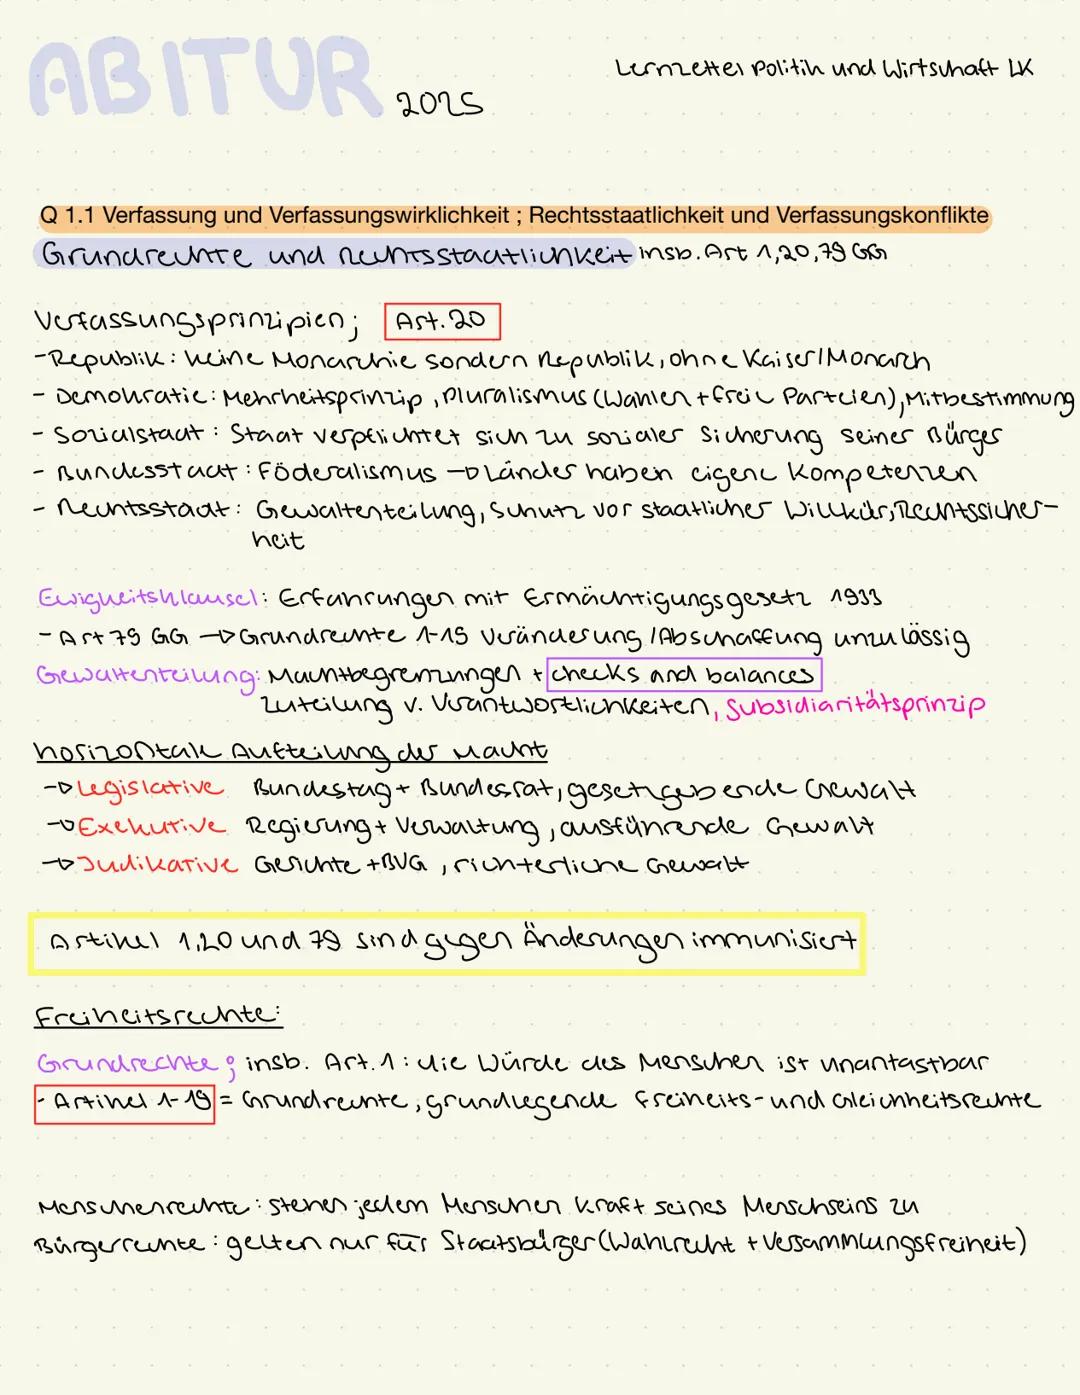 ABITUR 2025
Lernzettel Politik und Wirtschaft LK
Q 1.1 Verfassung und Verfassungswirklichkeit ; Rechtsstaatlichkeit und Verfassungskonflikte
Grundrechte und Rechtsstaatlichkeit insb. Art 1,20,79 GG
Verfassungsprinzipien; Art. 20
- Republik: keine Monarchie sondern Republik, ohne Kaiser/Monarch
- Demokratie: Mehrheitsprinzip, Pluralismus (Wahlen + freie Parteien), Mitbestimmung
- Sozialstaat: Staat verpflichtet sich zu sozialer Sicherung seiner Bürger
- Bundesstaat: Föderalismus → Länder haben eigene Kompetenzen
- Rechtsstaat: Gewaltenteilung, Schutz vor staatlicher Willkür, Rechtssicher-
heit
Ewigkeitsklausel: Erfahrungen mit Ermächtigungsgesetz 1933
- Art 79 GG → Grundrechte 1-19 Veränderung / Abschaffung unzulässig
Gewaltenteilung: Machtbegrenzungen + checks and balances
Zuteilung v. Verantwortlichkeiten, Subsidiaritätsprinzip
horizontale Aufteilung der Macht
→ Legislative Bundestag + Bundesrat, gesetzgebende Gewalt
→ Exekutive Regierung + Verwaltung, ausführende Gewalt
→ Judikative Gerichte + BVG, richterliche Gewalt
Artikel 1,20 und 79 sind gegen Änderungen immunisiert
Freiheitsrechte:
Grundrechte; insb. Art. 1: die Würde des Menschen ist unantastbar
- Artikel 1-19 = Grundrechte, grundlegende Freiheits- und Gleichheitsrechte
Menschenrechte: stehen jedem Menschen kraft seines Menschseins zu
Bürgerrechte: gelten nur für Staatsbürger (Wahlrecht + Versammlungsfreiheit)